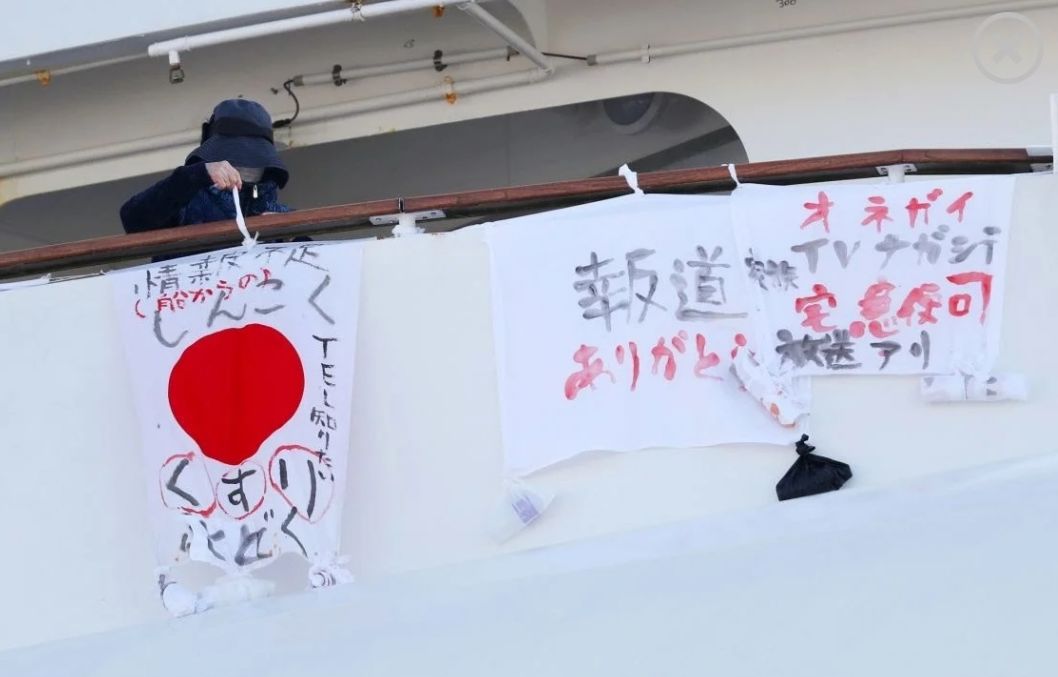 情報不足
(船からの)
しんこく
TEL知りたい
くすり
とどく
報道
ありがとう
オネガイ
TVナガシテ
宅急便可
放送アリ